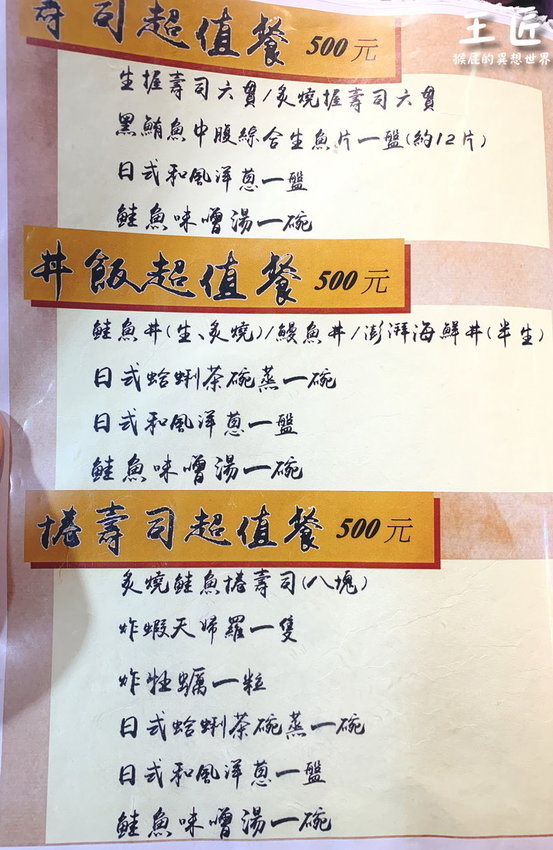 王匠
猴屁的異想世界
壽司超值餐 500元
生握壽司六貫/炙燒握壽司六貫
黑鮪魚中腹綜合生魚片一盤(約12片)
日式和風洋蔥一盤
鮭魚味噌湯一碗
丼飯超值餐 500元
鮭魚丼(生、炙燒)/鰻魚丼/澎湃海鮮丼(半生)
日式蛤蜊茶碗蒸一碗
日式和風洋蔥一盤
鮭魚味噌湯一碗
捲壽司超值餐 500元
炙燒鮭魚捲壽司(八塊)
炸蝦天婦羅一隻
炸牡蠣一粒
日式蛤蜊茶碗蒸一碗
日式和風洋蔥一盤
鮭魚味噌湯一碗